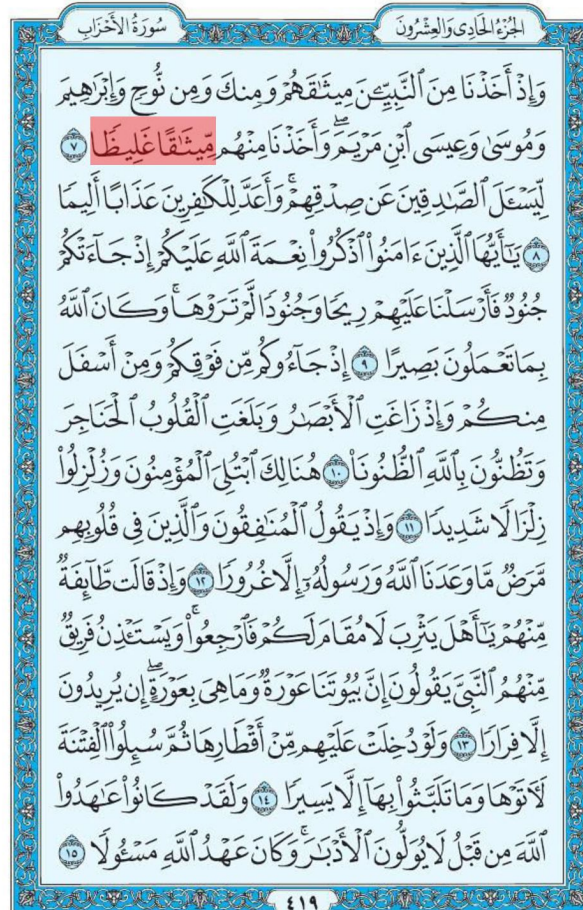 سُورَةُ الأَحْزَابِ
الجُزْءُ الحَادِى وَالعِشْرُونَ
وَإِذْ أَخَذْنَا مِنَ ٱلنَّبِيِّـۧنَ مِيثَـٰقَهُمْ وَمِنكَ وَمِن نُّوحٍ وَإِبْرَٰهِيمَ
وَمُوسَىٰ وَعِيسَى ٱبْنِ مَرْيَمَۖ وَأَخَذْنَا مِنْهُم مِّيثَـٰقًا غَلِيظًا ٧
لِّيَسْـَٔلَ ٱلصَّـٰدِقِينَ عَن صِدْقِهِمْۚ وَأَعَدَّ لِلْكَـٰفِرِينَ عَذَابًا أَلِيمًا
٨ يَـٰٓأَيُّهَا ٱلَّذِينَ ءَامَنُوا۟ ٱذْكُرُوا۟ نِعْمَةَ ٱللَّهِ عَلَيْكُمْ إِذْ جَآءَتْكُمْ
جُنُودٌ فَأَرْسَلْنَا عَلَيْهِمْ رِيحًا وَجُنُودًا لَّمْ تَرَوْهَاۚ وَكَانَ ٱللَّهُ
بِمَا تَعْمَلُونَ بَصِيرًا ٩ إِذْ جَآءُوكُم مِّن فَوْقِكُمْ وَمِنْ أَسْفَلَ
مِنكُمْ وَإِذْ زَاغَتِ ٱلْأَبْصَـٰرُ وَبَلَغَتِ ٱلْقُلُوبُ ٱلْحَنَاجِرَ
وَتَظُنُّونَ بِٱللَّهِ ٱلظُّنُونَا۠ ١٠ هُنَالِكَ ٱبْتُلِىَ ٱلْمُؤْمِنُونَ وَزُلْزِلُوا۟
زِلْزَالًا شَدِيدًا ١١ وَإِذْ يَقُولُ ٱلْمُنَـٰفِقُونَ وَٱلَّذِينَ فِى قُلُوبِهِم
مَّرَضٌ مَّا وَعَدَنَا ٱللَّهُ وَرَسُولُهُۥٓ إِلَّا غُرُورًا ١٢ وَإِذْ قَالَت طَّآئِفَةٌ
مِّنْهُمْ يَـٰٓأَهْلَ يَثْرِبَ لَا مُقَامَ لَكُمْ فَٱرْجِعُوا۟ۚ وَيَسْتَـْٔذِنُ فَرِيقٌ
مِّنْهُمُ ٱلنَّبِىَّ يَقُولُونَ إِنَّ بُيُوتَنَا عَوْرَةٌ وَمَا هِىَ بِعَوْرَةٍۖ إِن يُرِيدُونَ
إِلَّا فِرَارًا ١٣ وَلَوْ دُخِلَتْ عَلَيْهِم مِّنْ أَقْطَارِهَا ثُمَّ سُئِلُوا۟ ٱلْفِتْنَةَ
لَـَٔاتَوْهَا وَمَا تَلَبَّثُوا۟ بِهَآ إِلَّا يَسِيرًا ١٤ وَلَقَدْ كَانُوا۟ عَـٰهَدُوا۟
ٱللَّهَ مِن قَبْلُ لَا يُوَلُّونَ ٱلْأَدْبَـٰرَۚ وَكَانَ عَهْدُ ٱللَّهِ مَسْـُٔولًا ١٥
٤١٩